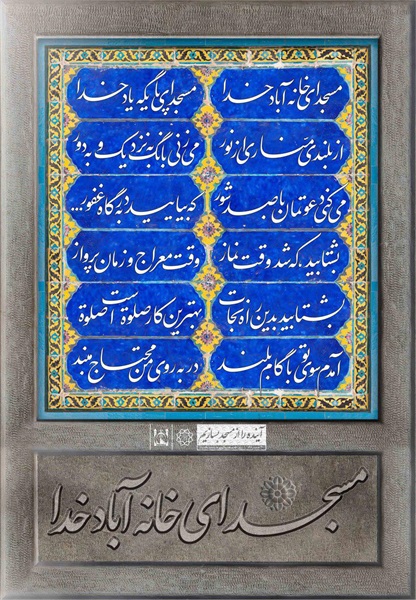 مسجد ای خانه آباد خدا
مسجد ای پایگه یاد خدا
از بلندی مناری از نور
می زنی بانگ به نزدیک و به دور
می کنی دعوتمان با صد شور
که بیایید به درگاه غفور...
بشتابید که شد وقت نماز
وقت معراج و زمان پرواز
بشتابید بدین راه نجات
بهترین کار صلوة است صلوة
آمدم سوی تو با گام بلند
در به روی من محتاج مبند
آینده را از مسجد بسازیم
مسجد ای خانه آباد خدا